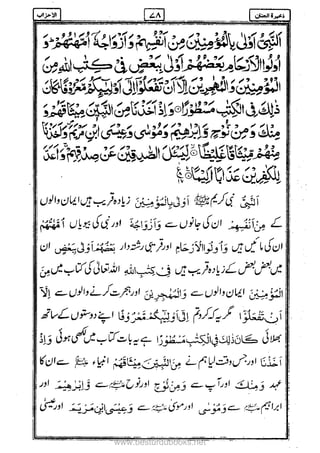 ذخیرة الجنان ۷۸ الاحزاب
اَلنَّبِیُّ اَوْلٰی بِالْمُؤْمِنِیْنَ مِنْ اَنْفُسِهِمْ وَاَزْوَاجُهٗۤ اُمَّهٰتُهُمْ وَ
اُولُوا الْاَرْحَامِ بَعْضُهُمْ اَوْلٰی بِبَعْضٍ فِیْ كِتٰبِ اللّٰهِ مِنَ
الْمُؤْمِنِیْنَ وَالْمُهٰجِرِیْنَ اِلَّاۤ اَنْ تَفْعَلُوْۤا اِلٰۤی اَوْلِیٰٓئِكُمْ مَّعْرُوْفًا كَانَ
ذٰلِكَ فِی الْكِتٰبِ مَسْطُوْرًا وَاِذْ اَخَذْنَا مِنَ النَّبِیّٖنَ مِیْثَاقَهُمْ وَ
مِنْكَ وَمِنْ نُّوْحٍ وَّاِبْرٰهِیْمَ وَمُوْسٰی وَعِیْسَی ابْنِ مَرْیَمَ وَاَخَذْنَا
مِنْهُمْ مِّیْثَاقًا غَلِیْظًا لِّیَسْئَلَ الصّٰدِقِیْنَ عَنْ صِدْقِهِمْ وَاَعَدَّ
لِلْكٰفِرِیْنَ عَذَابًا اَلِیْمًا
اَلنَّبِیُّ نبی کریم ﷺ اَوْلٰی بِالْمُؤْمِنِیْنَ زیادہ قریب ہیں ایمان والوں
کے مِنْ اَنْفُسِهِمْ ان کی جانوں سے وَاَزْوَاجُهٗۤ اور نبی کی بیویاں اُمَّهٰتُهُمْ
ان کی مائیں ہیں وَاُولُوا الْاَرْحَامِ اور قریبی رشتہ دار بَعْضُهُمْ اَوْلٰی بِبَعْضٍ ان
میں بعض بعض کے زیادہ قریب ہیں فِیْ كِتٰبِ اللّٰهِ اللہ تعالیٰ کی کتاب میں مِنَ
الْمُؤْمِنِیْنَ ایمان والوں سے وَالْمُهٰجِرِیْنَ اور ہجرت کرنے والوں سے اِلَّاۤ
اَنْ تَفْعَلُوْۤا مگر یہ کہ کرو تم اِلٰۤی اَوْلِیٰٓئِكُمْ مَّعْرُوْفًا اپنے دوستوں کے ساتھ
بھلائی كَانَ ذٰلِكَ فِی الْكِتٰبِ مَسْطُوْرًا ہے یہ بات کتاب میں لکھی ہوئی وَاِذْ
اَخَذْنَا اور جس وقت لیا ہم نے مِنَ النَّبِیّٖنَ مِیْثَاقَهُمْ انبیاء سے ان کا
عہد وَمِنْكَ اور آپ سے وَمِنْ نُّوْحٍ اور نوح سے وَّاِبْرٰهِیْمَ اور
ابراہیم سے وَمُوْسٰی اور موسیٰ سے وَعِیْسَی ابْنِ مَرْیَمَ اور عیسیٰ
www.besturdubooks.net